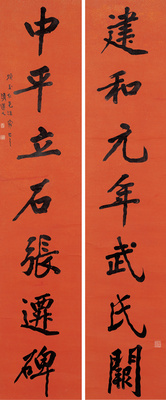 建和元年武氏闕
中平立石張遷碑